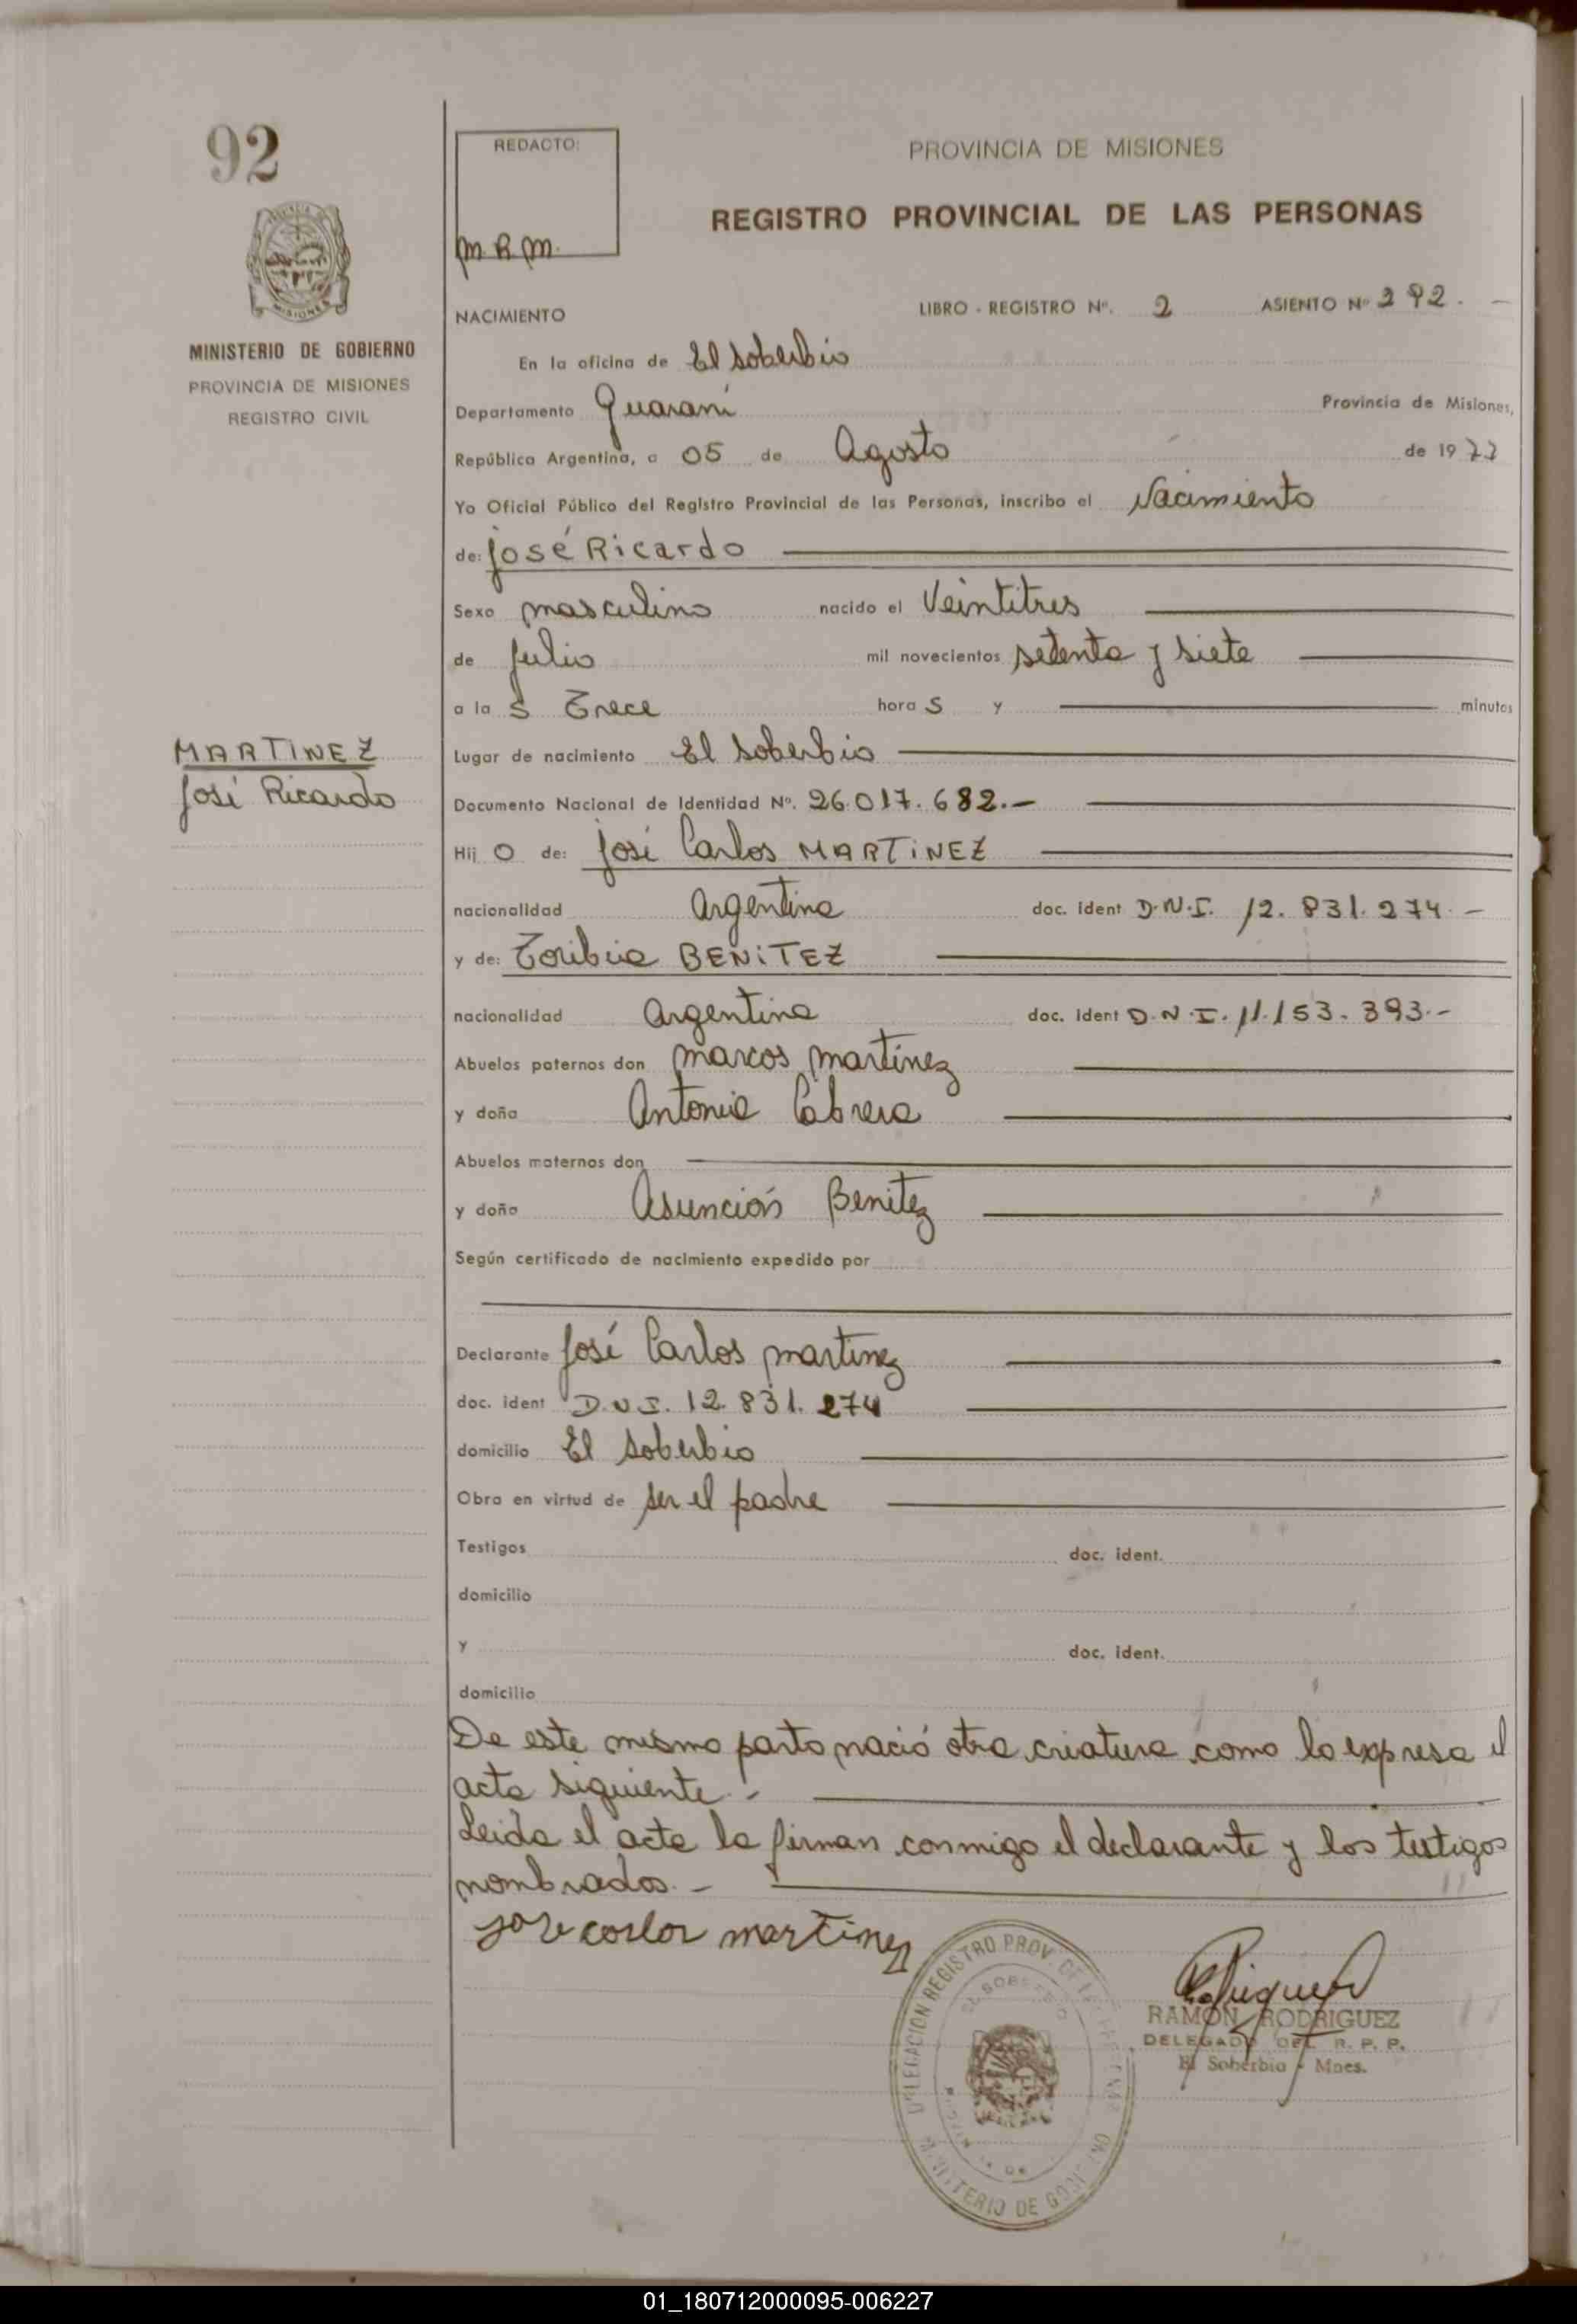 92
MINISTERIO DE GOBIERNO
PROVINCIA DE MISIONES
REGISTRO CIVIL
REDACTO:
M.R.M.
PROVINCIA DE MISIONES
REGISTRO PROVINCIAL DE LAS PERSONAS
NACIMIENTO LIBRO - REGISTRO Nº. 2 ASIENTO Nº 292.-
En la oficina de El Soberbio
Departamento Guaraní Provincia de Misiones,
República Argentina, a 05 de Agosto de 1977
Yo Oficial Público del Registro Provincial de las Personas, inscribo el Nacimiento
de: José Ricardo
Sexo masculino nacido el Veintitres
de Julio mil novecientos setenta y siete
a la s Trece hora s y minutos
MARTINEZ
José Ricardo
Lugar de nacimiento El Soberbio
Documento Nacional de Identidad Nº. 26.017.682.-
Hij o de: José Carlos MARTINEZ
nacionalidad Argentina doc. ident D.N.I. 12.831.274.-
y de: Toribia BENITEZ
nacionalidad Argentina doc. ident D.N.I. 11.153.393.-
Abuelos paternos don Marcos Martinez
y doña Antonia Cabrera
Abuelos maternos don
y doña Asunción Benitez
Según certificado de nacimiento expedido por
Declarante José Carlos Martinez
doc. ident D.N.I. 12.831.274
domicilio El Soberbio
Obra en virtud de ser el padre
Testigos doc. ident.
domicilio
y doc. ident.
domicilio
De este mismo parto nació otra criatura como lo expresa el
acta siguiente.-
Leida el acta la firman conmigo el declarante y los testigos
nombrados.-
Jose carlos martinez
DELEGACION REGISTRO PROV. DE LAS PERSONAS
EL SOBERBIO
MINISTERIO DE GOBIERNO
RAMON RODRIGUEZ
DELEGADO DEL R. P. P.
El Soberbio - Mnes.
01_180712000095-006227